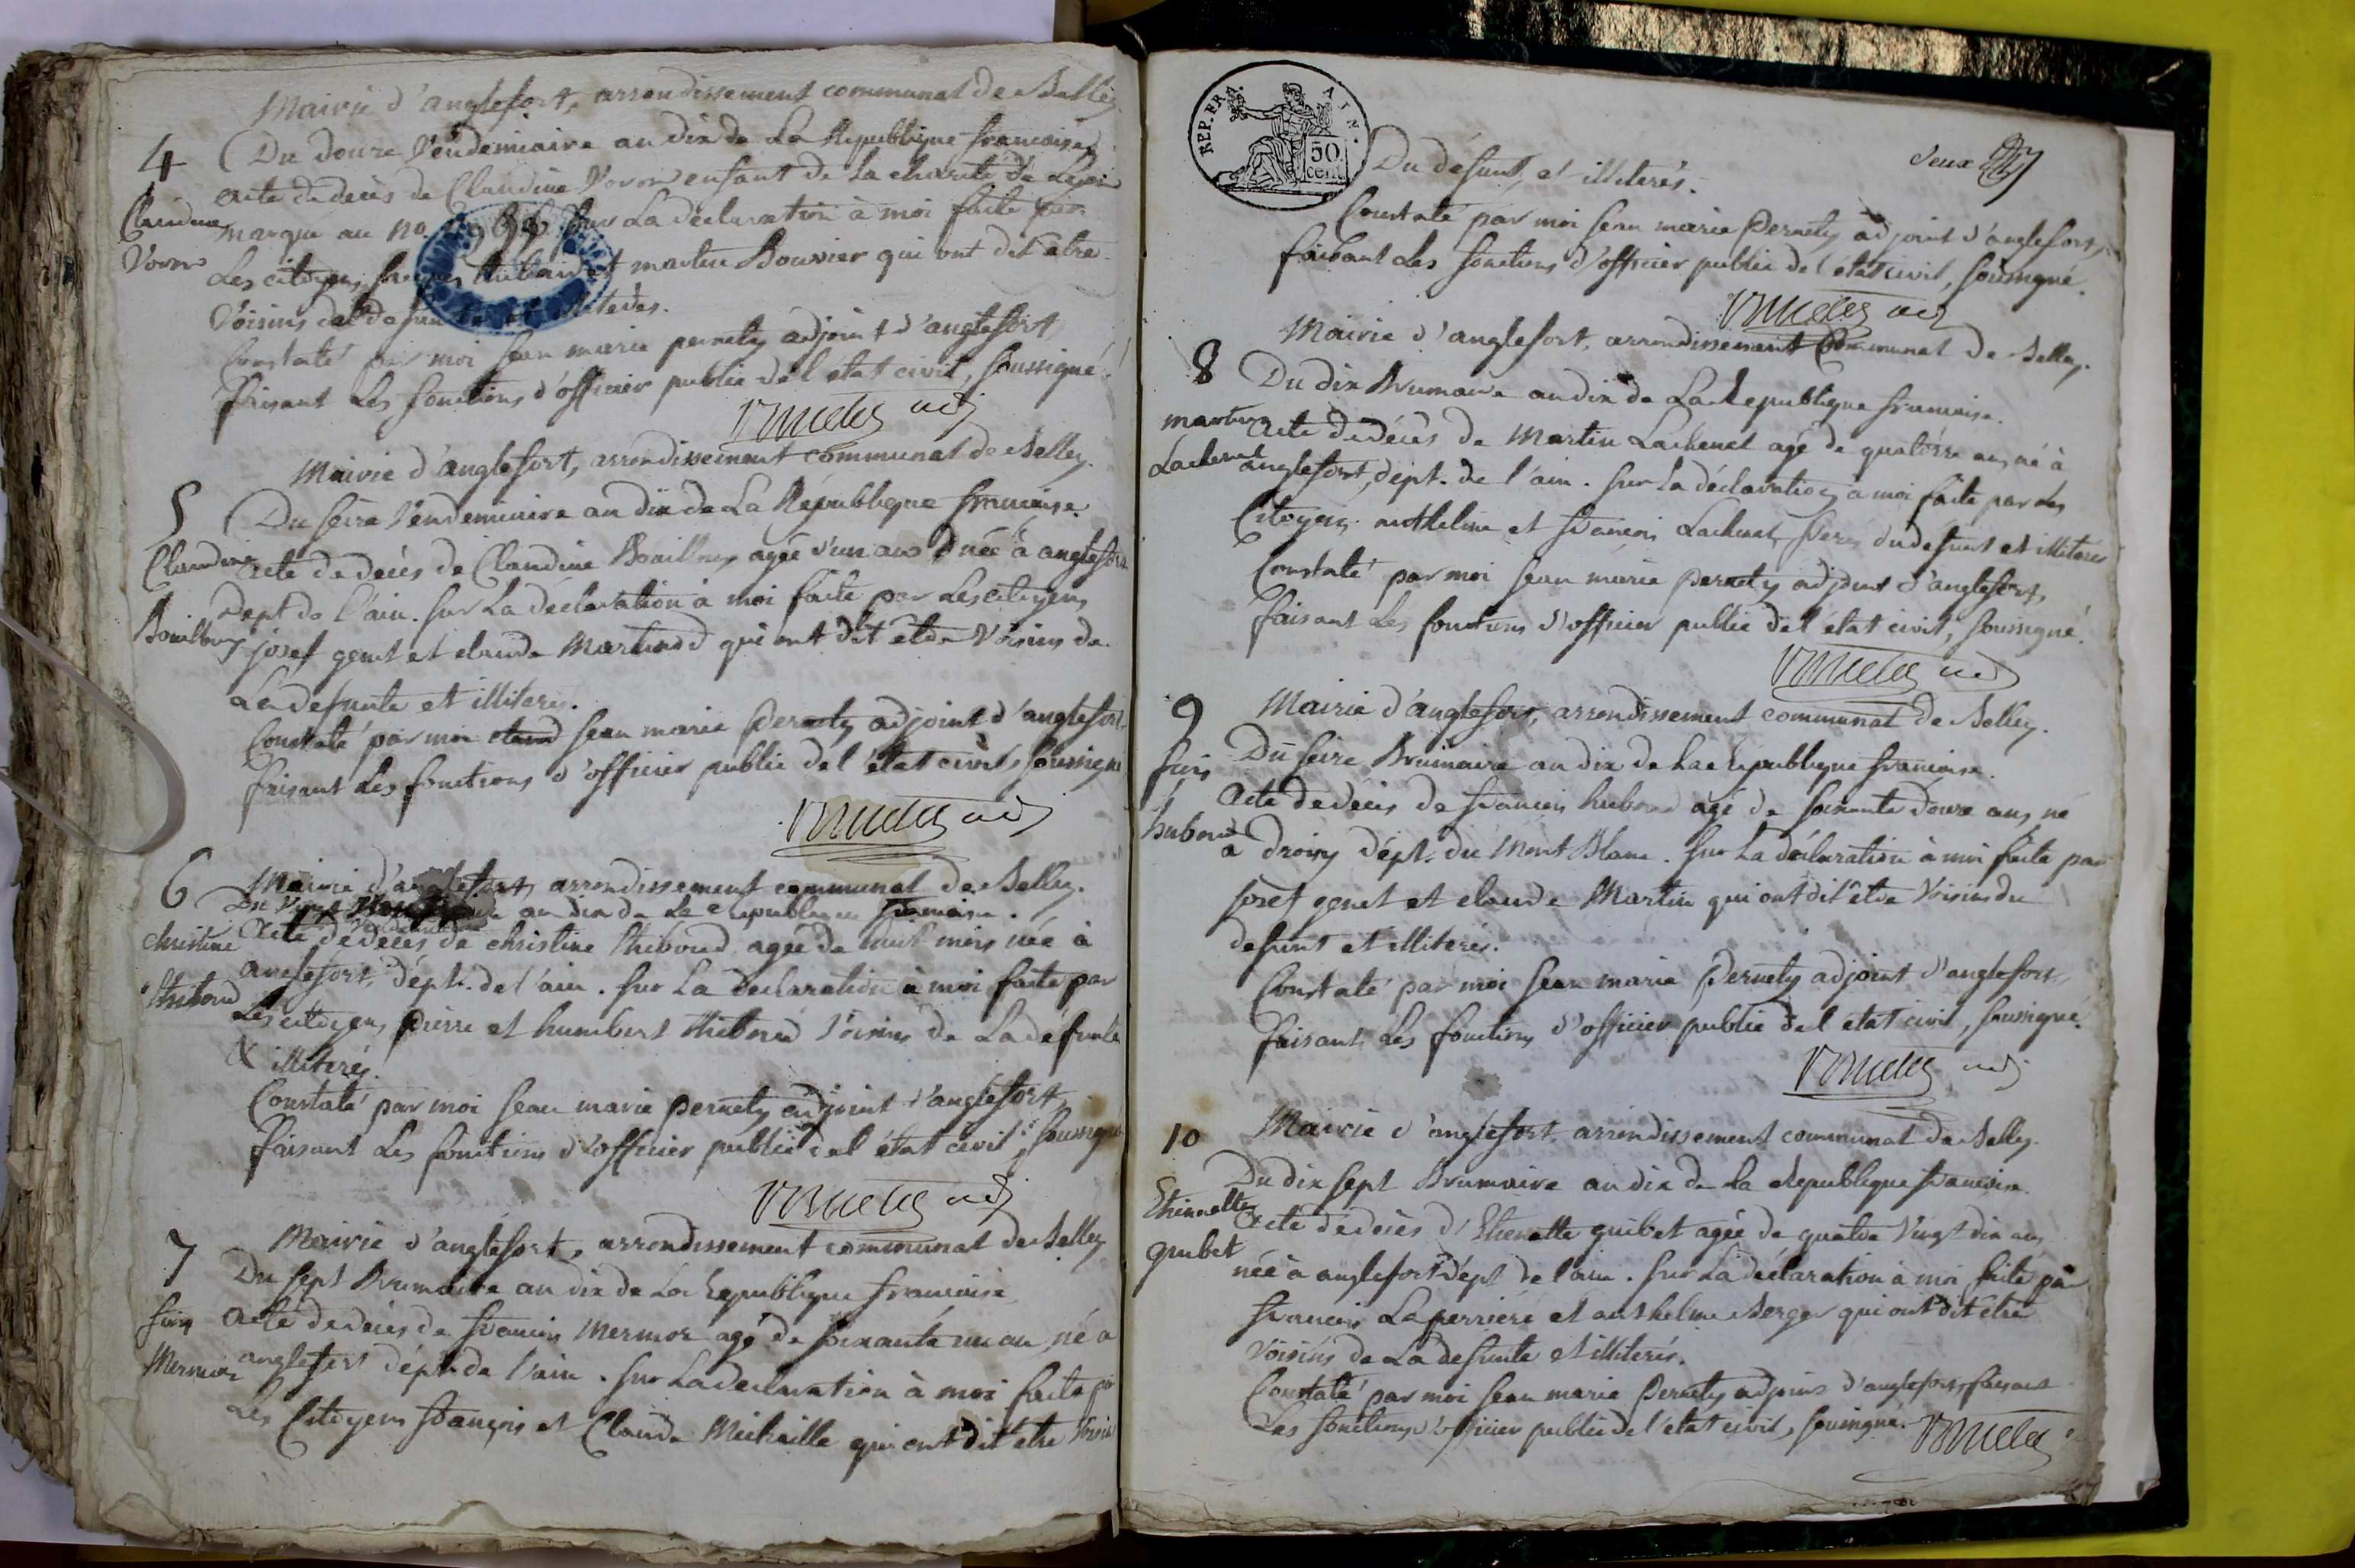 Mairie d'anglefort, arrondissement communal de Belley
4
Du douze Vendemiaire an dix de La Republique francoise
acte de deces de Claudine Voron enfant de la charité de Lyon
Claudine
marqué au no. Sur La déclaration à moi faite par
Voron
Les citoyens et martin Bouvier qui ont dit etre
Voisins de
Constaté par moi Jean marie pernety adjoint d'anglefort
faisant Les fonctions d'officier public de l'état civil, soussigné.
Mairie d'anglefort, arrondissement communal de Belley.
5
Du seize Vendemiaire an dix de La République francoise.
Claudine
acte de deces de Claudine Bouilloux agée d'un an née à anglefort
Dept de l'ain. sur La declaration à moi faite par Les citoyens
Bouilloux
josef genet et claude Martinod qui ont dit etre Voisins de
La defunte et illiterés.
Constaté par moi Jean marie Pernety adjoint d'anglefort,
faisant Les fonctions d'officier public de l'état civil, soussigné
6
Mairie d'anglefort, arrondissement communal de Belley.
Du an dix de La Republique francoise.
christine
Acte de deces de christine thiboud agée de huit mois née à
anglefort, dépt. de l'ain. sur La declaration à moi faite par
thiboud
Les citoyens pierre et humbert thiboud Voisins de La défunte
& illiterés.
Constaté par moi Jean marie Pernety adjoint d'anglefort,
faisant Les fonctions d'officier public de l'état civil, soussigné
7
Mairie d'anglefort, arrondissement communal de Belley
Du sept Brumaire an dix de La Republique francoise
fcois
acte de deces de francois Mermoz agé de soixante un an né a
Mermoz
anglefort dépt. de l'ain. Sur La declaration à moi faite par
Les Citoyens françois et Claude Michaille qui ont dit etre Voisins
REP. FRA. 50 cent.
deux
Du défunt, et illiterés.
Constaté par moi Jean marie Pernety adjoint d'anglefort,
faisant Les fonctions d'officier public de l'état civil, soussigné.
Mairie d'anglefort, arrondissement Communal de Belley.
8
Du dix Brumaire an dix de La Republique francoise.
martin
acte de décès de Martin Lachenal agé de quatorze ans né à
Lachenal
anglefort, dépt. de l'ain. Sur La déclaration à moi faite par Les
Citoyens anthelme et francois Lachenal, du defunt et illiterés
Constaté par moi Jean marie Pernety adjoint d'anglefort,
faisant Les fonctions d'officier public de l'état civil, soussigné.
9
Mairie d'anglefort, arrondissement communal de Belley.
Du seize Brumaire an dix de La Republique francoise.
fcois
Acte de deces de francois huboud agé de soixante douze ans né
huboud
à droisy dépt. du Mont Blanc. Sur La déclaration à moi faite par
Josef genet et claude Martin qui ont dit être Voisins du
defunt et illiterés.
Constaté par moi Jean marie Pernety adjoint d'anglefort,
faisant Les fonctions d'officier public de l'état civil, soussigné.
10
Mairie d'anglefort, arrondissement communal de Belley.
Du dix sept Brumaire an dix de La Republique francoise.
Etiennette
acte de deces d'Etienette guibet agée de quatre Vingt dix ans
guibet
née à anglefort dépt de l'ain. Sur La déclaration à moi faite par
francois Laperriere et anthelme Berger qui ont dit etre
Voisins de La defunte et illiterés.
Constaté par moi Jean marie Pernety adjoint d'anglefort, faisant
Les fonctions d'officier public de l'état civil, soussigné.